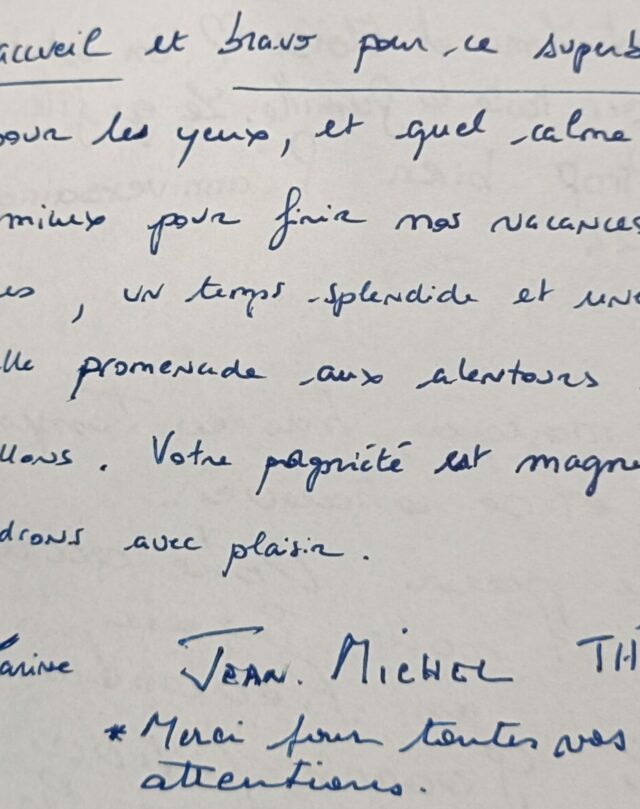 accueil et bravo pour ce superb
pour les yeux, et quel calme
mieux pour finir nos vacances
es, un temps splendide et une
lle promenade aux alentours
llons. Votre propriété est magne
drons avec plaisir.
arine JEAN. MICHEL TH
* Merci pour toutes vos
attentions.